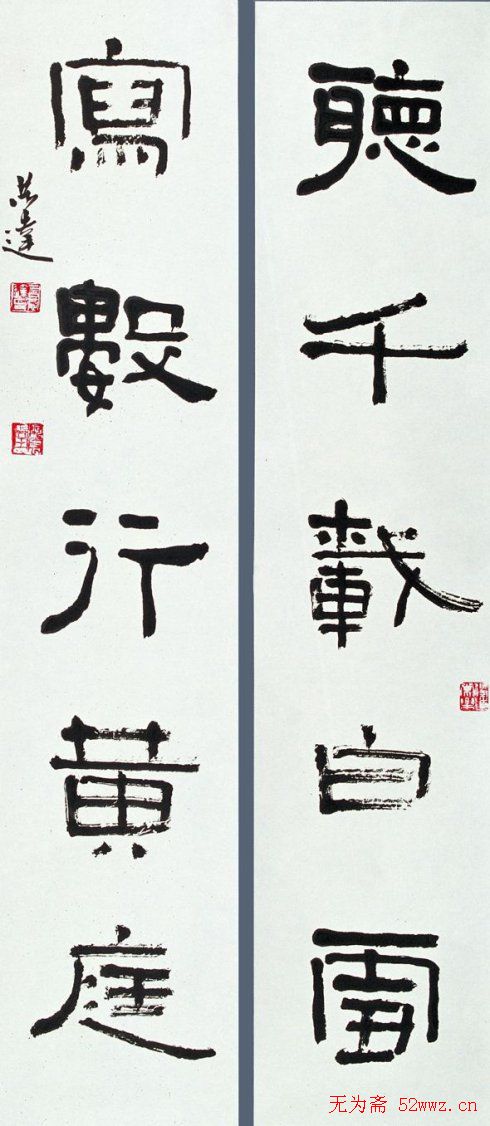 聽千載白雪
寫數行黄庭
无为斋 52wwz.cn